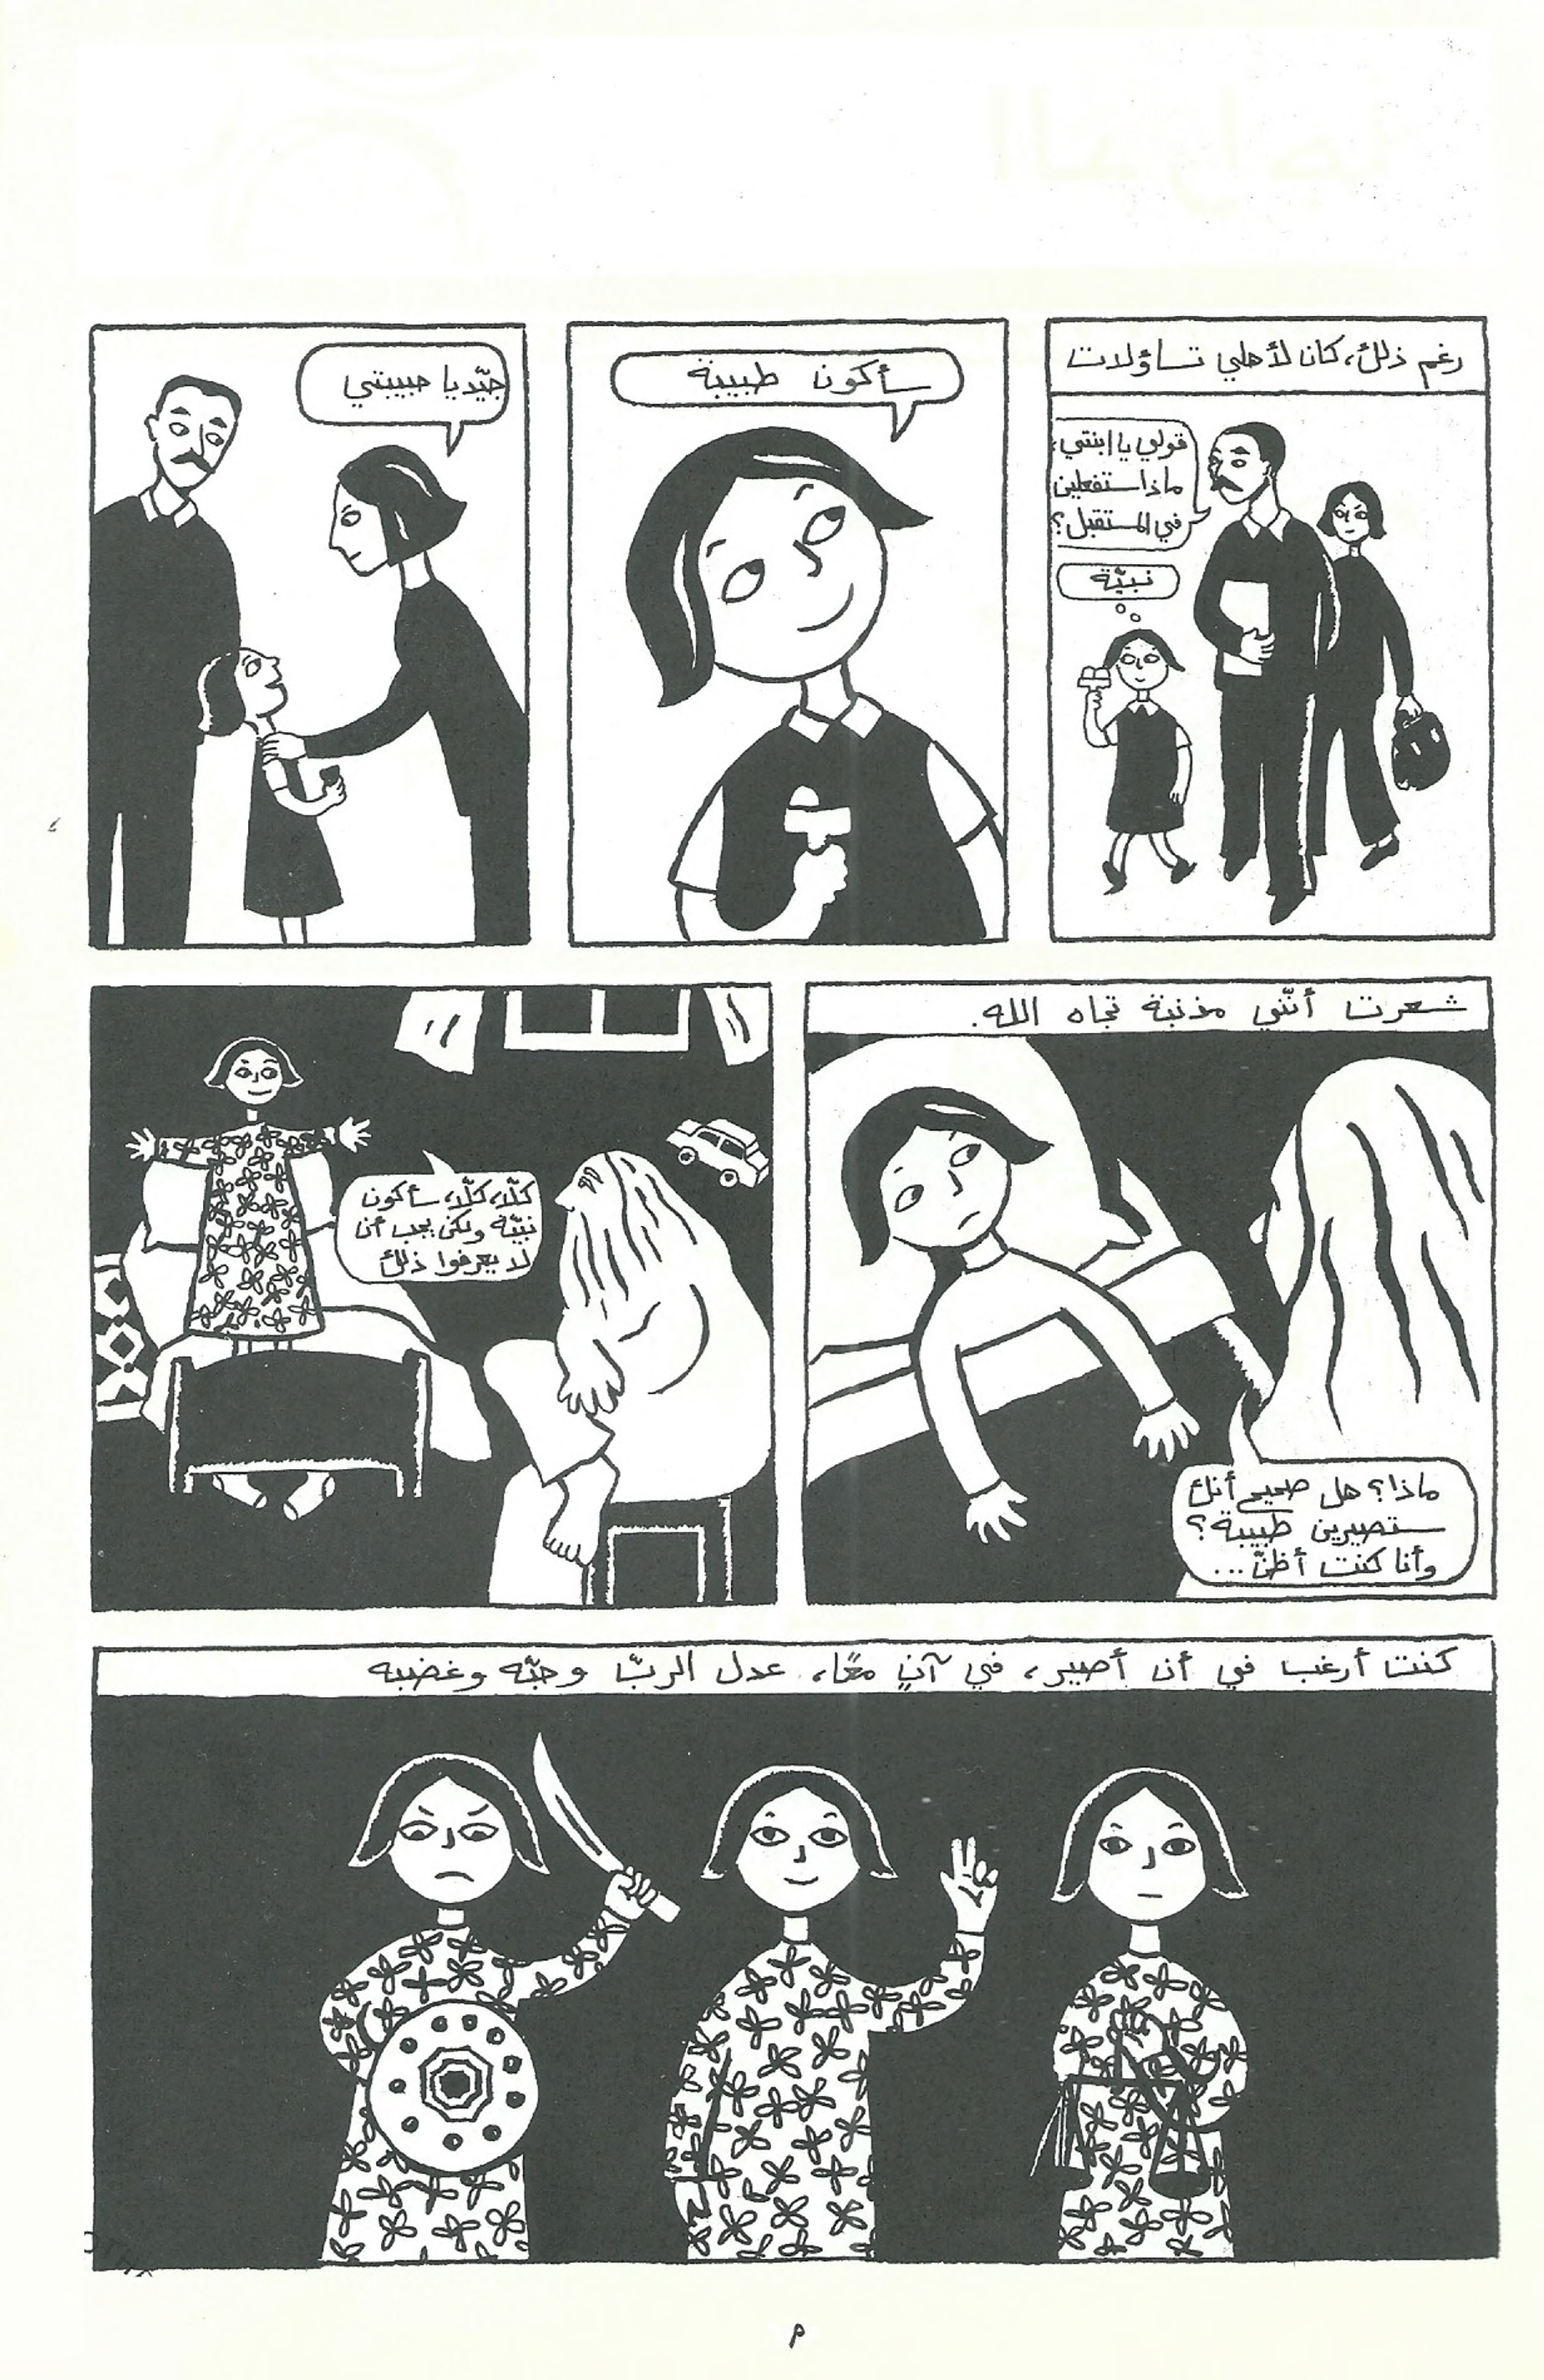 رغم ذلك، كان لأهلي تساؤلات
قولي يا ابنتي،
ماذا ستفعلين
في المستقبل؟
نبيّة
سأكون طبيبة
جيّد يا حبيبتي
شعرت أنّني مذنبة تجاه الله.
ماذا؟ هل صحيح أنك
ستصيرين طبيبة؟
وأنا كنت أظنّ...
كلّا، كلّا، سأكون
نبيّة ولكن يجب أن
لا يعرفوا ذلك
كنت أرغب في أن أصير، في آنٍ معًا، عدل الربّ وحبّه وغضبه